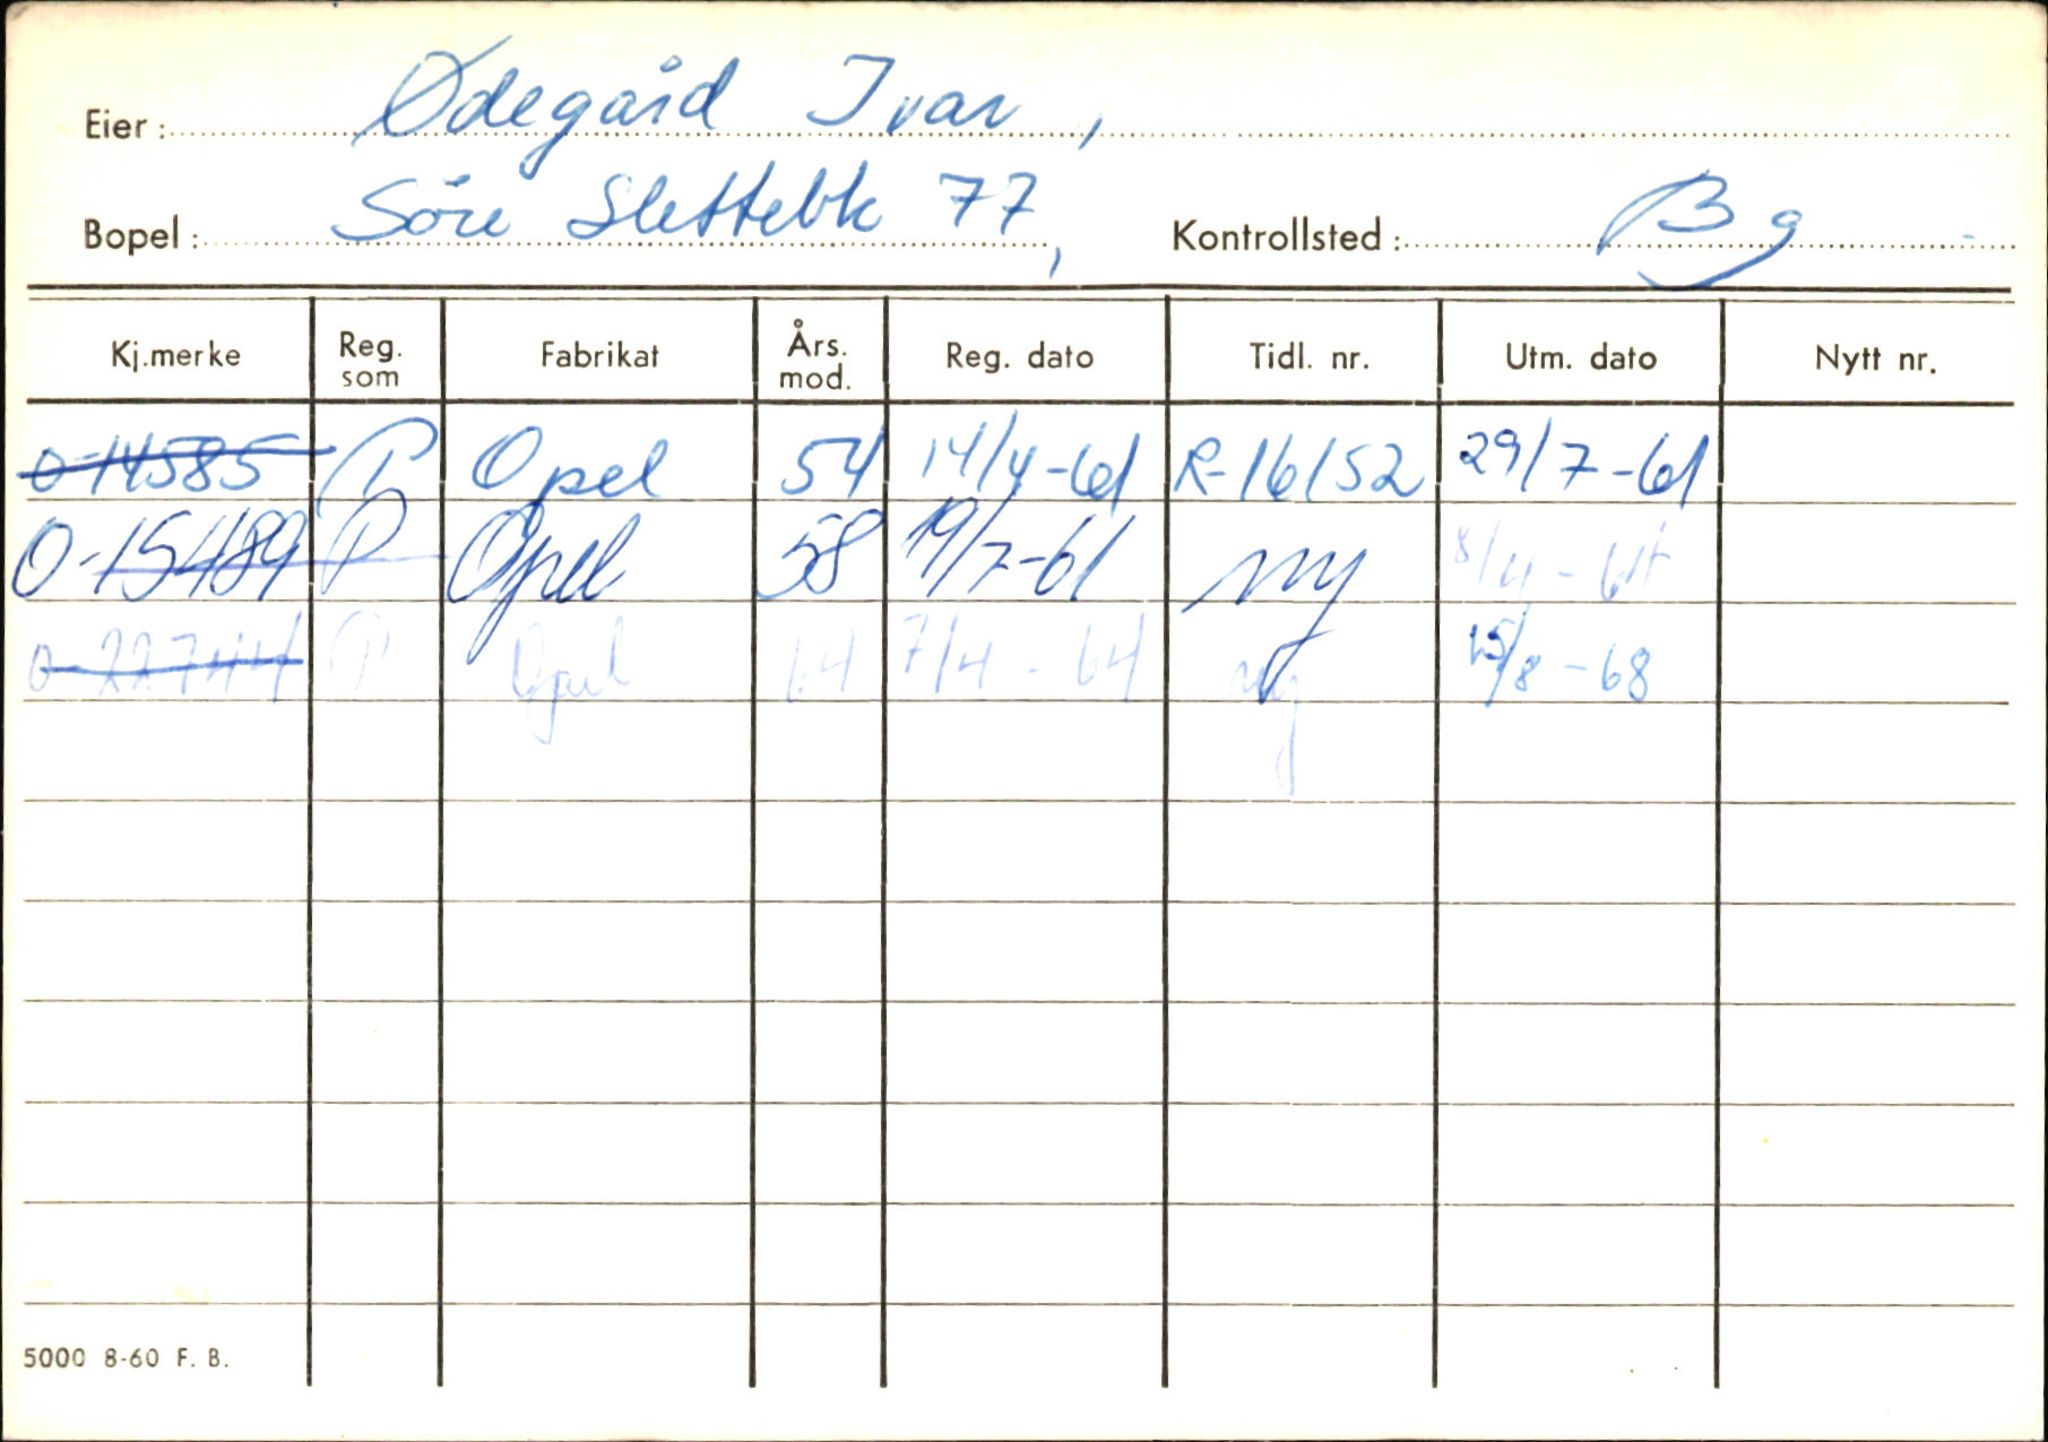 Eier: Ødegård Ivar,
Bopel: Søre Slettebk 77, Kontrollsted: Bg
Kj.merke Reg. som Fabrikat Års. mod. Reg. dato Tidl. nr. Utm. dato Nytt nr.
O-14585 P Opel 54 14/4-61 R-16152 29/7-61
O-15489 P Opel 58 19/7-61 ny 8/4-64
O-22744 P Opel 64 7/4-64 ny 15/8-68
5000 8-60 F. B.